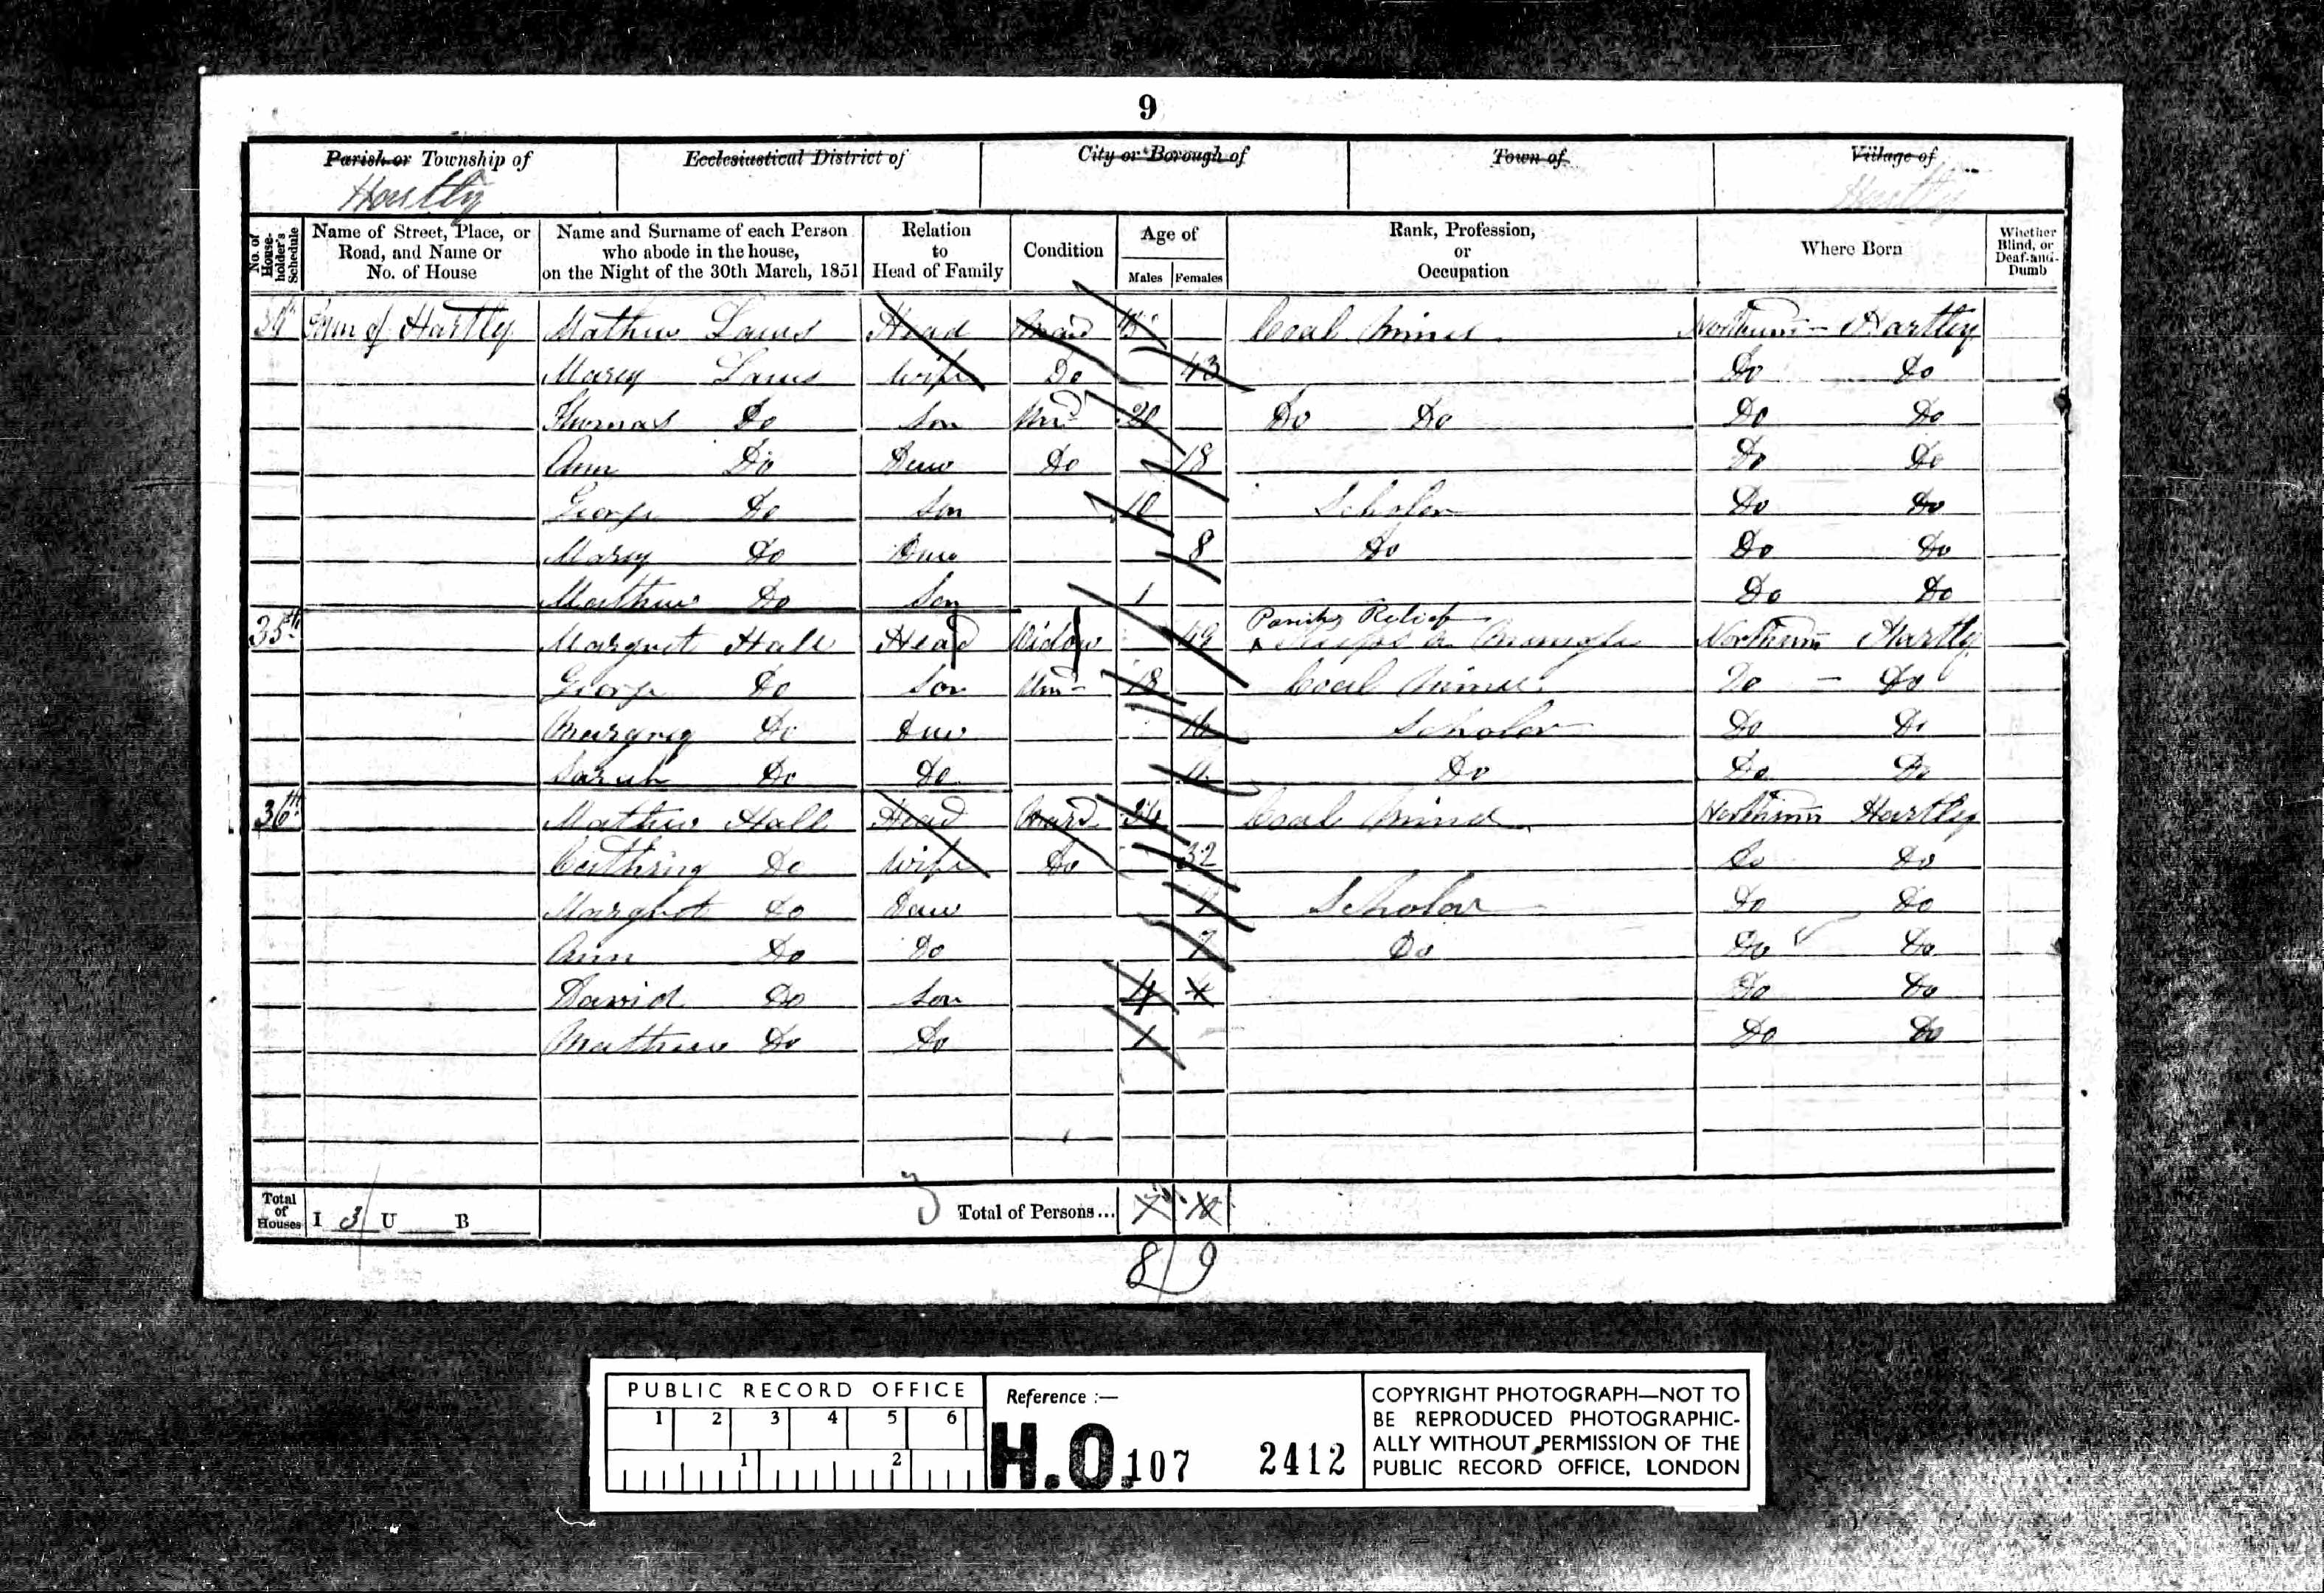 9
Parish or Township of Ecclesiastical District of City or Borough of Town of Village of
Hartly Hartly
No. of Householder's Schedule Name of Street, Place, or Road, and Name or No. of House Name and Surname of each Person who abode in the house, on the Night of the 30th March, 1851 Relation to Head of Family Condition Age of Males Females Rank, Profession, or Occupation Where Born Whether Blind, or Deaf-and-Dumb
Hartly Mathew Laws Head Mard Coal Miner Northum- Hartly
Marey Laws Wife Do 43 Do Do
Thomas Do Son Un 20 Do Do Do Do
Ann Do Daw Do 18 Do Do
George Do Son 10 Scholar Do Do
Marey Do Daw 8 Do Do Do
Mathew Do Son 1 Do Do
35th Margret Hall Head Widow 49 Parish Relief Northum Hartly
George Do Son Un- 18 Coal Miner Do - Do
Do Daw 16 Scholar Do Do
Sarah Do Do 11 Do Do Do
36th Mathew Hall Head Mard 34 Coal Miner Northum Hartly
Do Wife Do 32 Do Do
Margret Do Daw Scholar Do Do
Ann Do Do 7 Do Do Do
David Do Son 4 Do Do
Mathew Do Do 1 Do Do
Total of Houses I 3 U B Total of Persons... 7 10
8 9
PUBLIC RECORD OFFICE
1 2 3 4 5 6
1 2
Reference :—
H.O. 107 2412
COPYRIGHT PHOTOGRAPH—NOT TO
BE REPRODUCED PHOTOGRAPHIC-
ALLY WITHOUT PERMISSION OF THE
PUBLIC RECORD OFFICE, LONDON